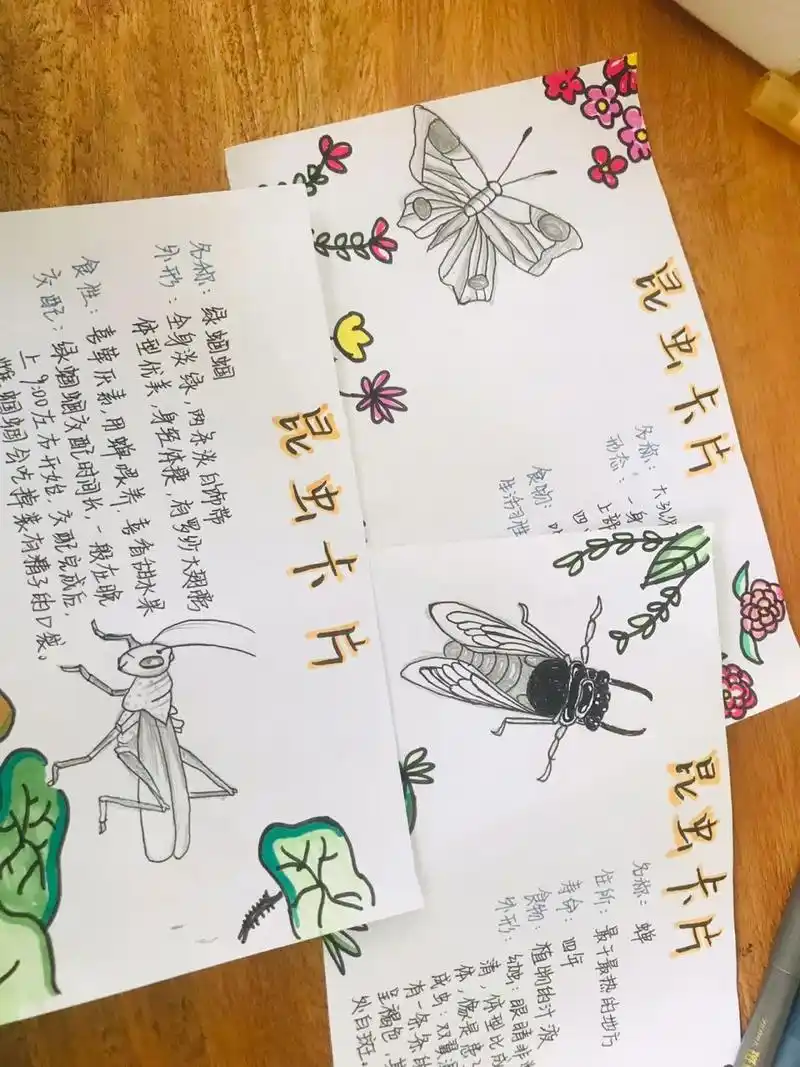 昆虫卡片
名称：绿蝈蝈
外形：全身淡绿，两条淡白饰带
体型优美，身轻体梗，有罗纱大翅膀
食性：喜荤厌素，用蝉喂养，喜香甜水果
交配：绿蝈蝈交配时间长，一般在晚
上9:00左右开始，交配完成后，
雌蝈蝈会吃掉装有精子的口袋。
昆虫卡片
名称：大孔
形态：一身
上部
四
食物：叶
生活习性
昆虫卡片
名称：蝉
住所：最干最热的地方
寿命：四年
食物：植物的汁液
外形：幼虫：眼睛非常
清，体型比成
体，
成虫：双翼
有一条条的
呈褐色，其
处白斑。